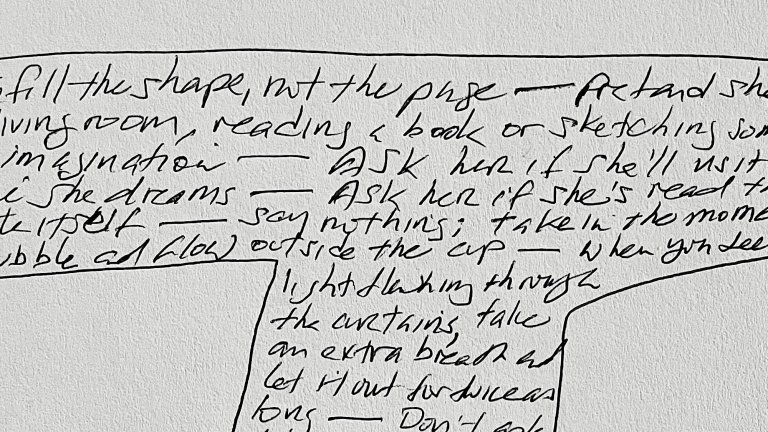 fill the shape, not the page — Pretend she
living room, reading a book or sketching som
imagination — Ask her if she'll visit
she dreams — Ask her if she's read t
te itself — say nothing; take in the mome
ubble and flow) outside the cup — when you see
light flashing through
the curtains, take
an extra breath and
let it out for twice as
long — Don't ask